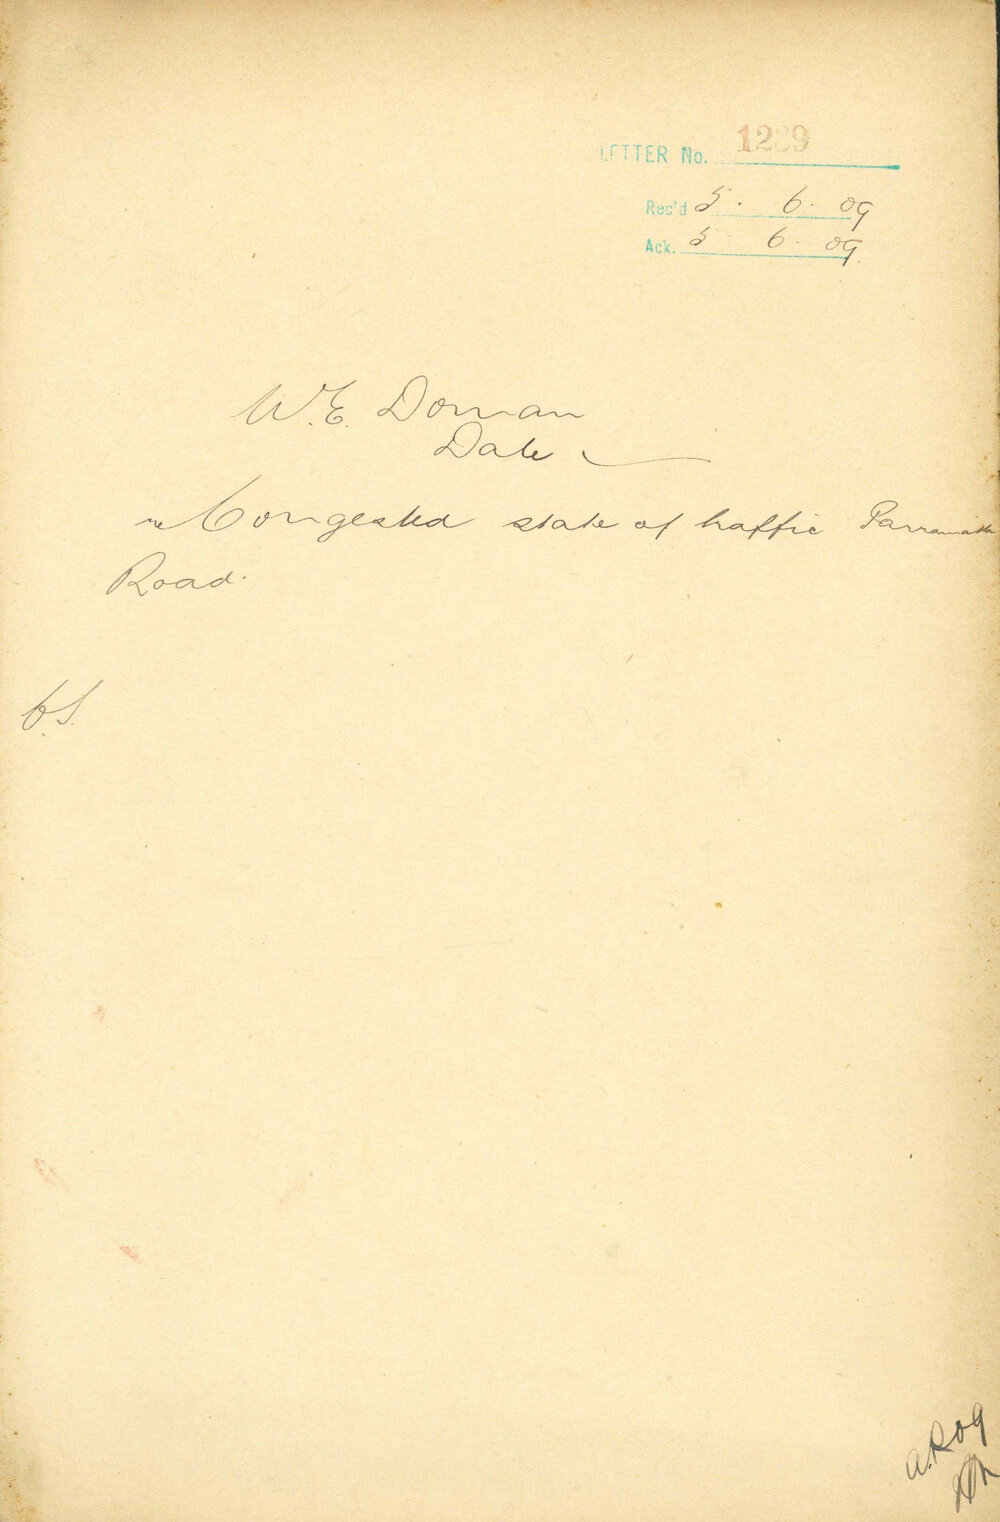 LETTER No. 1289
Rec'd 5 . 6 . 09
Ack. 5 6 . 09.
W. E. Dornan
Date
re Congested state of traffic Parramatta
Road.
A.R 09